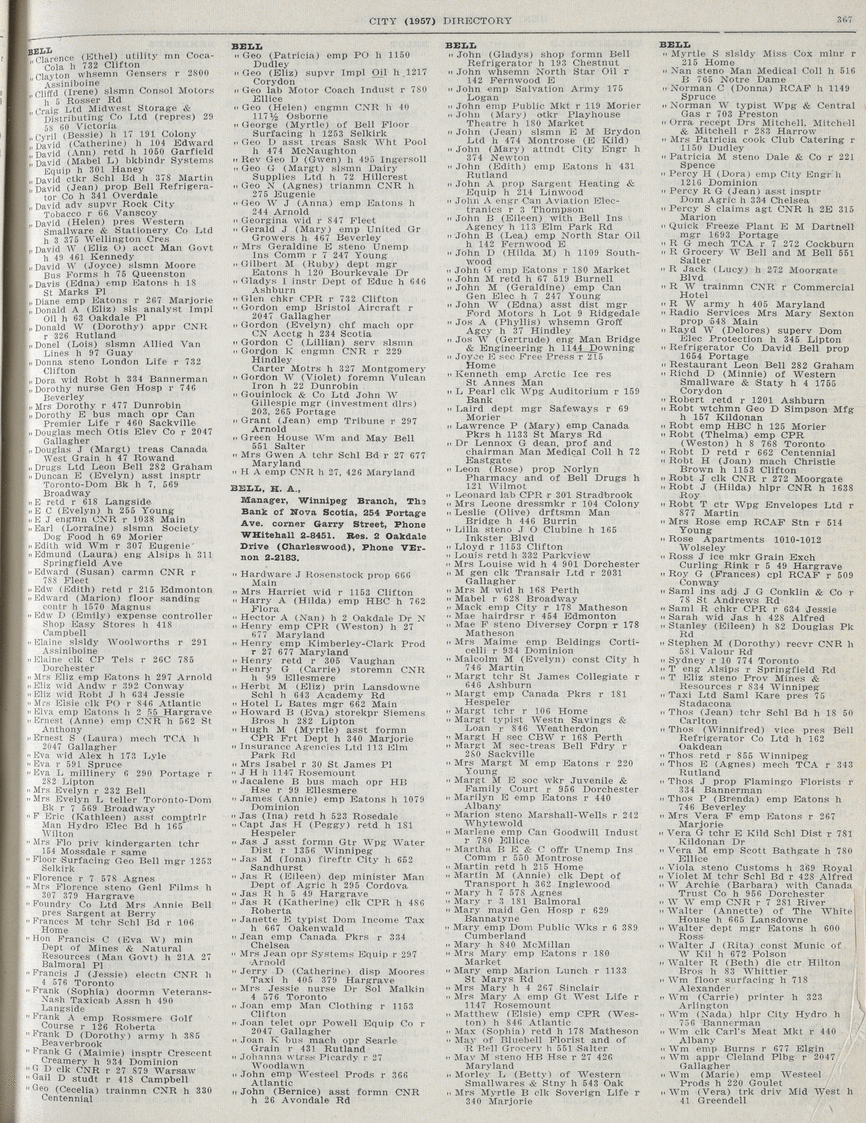 CITY (1957) DIRECTORY
367
BELL
" Clarence (Ethel) utility mn Coca-
Cola h 732 Clifton
" Clayton whsemn Gensers r 2800
Assiniboine
" Cliffd (Irene) slsmn Consol Motors
h 5 Rosser Rd
" Craig Ltd Midwest Storage &
Distributing Co Ltd (repres) 29
58 60 Victoria
" Cyril (Bessie) h 17 191 Colony
" David (Catherine) h 104 Edward
" David (Ann) retd h 1050 Garfield
" David (Mabel L) bkbindr Systems
Equip h 301 Haney
" David ctkr Schl Bd h 378 Martin
" David (Jean) prop Bell Refrigera-
tor Co h 341 Overdale
" David adv supvr Rock City
Tobacco r 66 Vanscoy
" David (Helen) pres Western
Smallware & Stationery Co Ltd
h 3 375 Wellington Cres
" David W (Eliz O) acct Man Govt
h 49 461 Kennedy
" David W (Joyce) slsmn Moore
Bus Forms h 75 Queenston
" Davis (Edna) emp Eatons h 18
St Marks Pl
" Diane emp Eatons r 267 Marjorie
" Donald A (Eliz) sls analyst Impl
Oil h 63 Oakdale Pl
" Donald W (Dorothy) appr CNR
r 326 Rutland
" Donel (Lois) slsmn Allied Van
Lines h 97 Guay
" Donna steno London Life r 732
Clifton
" Dora wid Robt h 334 Bannerman
" Dorothy nurse Gen Hosp r 746
Beverley
" Mrs Dorothy r 477 Dunrobin
" Dorothy E bus mach opr Can
Premier Life r 460 Sackville
" Douglas mech Otis Elev Co r 2047
Gallagher
" Douglas J (Margt) treas Canada
West Grain h 47 Rowand
" Drugs Ltd Leon Bell 282 Graham
" Duncan E (Evelyn) asst insptr
Toronto-Dom Bk h 7, 569
Broadway
" E retd r 618 Langside
" E C (Evelyn) h 255 Young
" E J engmn CNR r 1038 Main
" Earl (Lorraine) slsmn Society
Dog Food h 69 Morier
" Edith wid Wm r 307 Eugenie
" Edmund (Laura) eng Alsips h 311
Springfield Ave
" Edward (Susan) carmn CNR r
788 Fleet
" Edw (Edith) retd r 215 Edmonton
" Edward (Marion) floor sanding
contr h 1570 Magnus
" Edw D (Emily) expense controller
Shop Easy Stores h 418
Campbell
" Elaine slsldy Woolworths r 291
Assiniboine
" Elaine clk CP Tels r 26C 785
Dorchester
" Mrs Eliz emp Eatons h 297 Arnold
" Eliz wid Andw r 392 Conway
" Eliz wid Robt J h 634 Jessie
" Mrs Elsie clk PO r 846 Atlantic
" Elva emp Eatons h 2 55 Hargrave
" Ernest (Anne) emp CNR h 562 St
Anthony
" Ernest S (Laura) mech TCA h
2047 Gallagher
" Eva wid Alex h 173 Lyle
" Eva r 591 Spruce
" Eva L millinery 6 290 Portage r
282 Lipton
" Mrs Evelyn r 232 Bell
" Mrs Evelyn L teller Toronto-Dom
Bk r 7 569 Broadway
" F Eric (Kathleen) asst comptrlr
Man Hydro Elec Bd h 165
Wilton
" Mrs Flo priv kindergarten tchr
154 Mossdale r same
" Floor Surfacing Geo Bell mgr 1253
Selkirk
" Florence r 7 578 Agnes
" Mrs Florence steno Genl Films h
307 379 Hargrave
" Foundry Co Ltd Mrs Annie Bell
pres Sargent at Berry
" Frances M tchr Schl Bd r 106
Home
" Hon Francis C (Eva W) min
Dept of Mines & Natural
Resources (Man Govt) h 21A 27
Balmoral Pl
" Francis J (Jessie) electn CNR h
4 576 Toronto
" Frank (Sophia) doormn Veterans-
Nash Taxicab Assn h 490
Langside
" Frank A emp Rossmere Golf
Course r 126 Roberta
" Frank D (Dorothy) army h 385
Beaverbrook
" Frank G (Maimie) insptr Crescent
Creamery h 934 Dominion
" G D clk CNR r 27 879 Warsaw
" Gail D studt r 418 Campbell
" Geo (Cecelia) trainmn CNR h 330
Centennial
BELL
" Geo (Patricia) emp PO h 1150
Dudley
" Geo (Eliz) supvr Impl Oil h 1217
Corydon
" Geo lab Motor Coach Indust r 780
Ellice
" Geo (Helen) engmn CNR h 40
117½ Osborne
" George (Myrtle) of Bell Floor
Surfacing h 1253 Selkirk
" Geo D asst treas Sask Wht Pool
h 474 McNaughton
" Rev Geo D (Gwen) h 495 Ingersoll
" Geo G (Margt) slsmn Dairy
Supplies Ltd h 72 Hillcrest
" Geo N (Agnes) trianmn CNR h
275 Eugenie
" Geo W J (Anna) emp Eatons h
244 Arnold
" Georgina wid r 847 Fleet
" Gerald J (Mary) emp United Gr
Growers h 467 Beverley
" Mrs Geraldine E steno Unemp
Ins Comm r 7 247 Young
" Gilbert M (Ruby) dept mgr
Eatons h 120 Bourkevale Dr
" Gladys I instr Dept of Educ h 646
Ashburn
" Glen chkr CPR r 732 Clifton
" Gordon emp Bristol Aircraft r
2047 Gallagher
" Gordon (Evelyn) chf mach opr
CN Acctg h 234 Scotia
" Gordon C (Lillian) serv slsmn
" Gordon K engmn CNR r 229
Hindley
Carter Motrs h 327 Montgomery
" Gordon W (Violet) foremn Vulcan
Iron h 22 Dunrobin
" Gouinlock & Co Ltd John W
Gillespie mgr (investment dlrs)
203, 265 Portage
" Grant (Jean) emp Tribune r 297
Arnold
" Green House Wm and May Bell
551 Salter
" Mrs Gwen A tchr Schl Bd r 27 677
Maryland
" H A emp CNR h 27, 426 Maryland
BELL, H. A.,
Manager, Winnipeg Branch, The
Bank of Nova Scotia, 254 Portage
Ave. corner Garry Street, Phone
WHitehall 2-8451. Res. 2 Oakdale
Drive (Charleswood), Phone VEr-
non 2-2183.
" Hardware J Rosenstock prop 666
Main
" Mrs Harriet wid r 1153 Clifton
" Harry A (Hilda) emp HBC h 762
Flora
" Hector A (Nan) h 2 Oakdale Dr N
" Henry emp CPR (Weston) h 27
677 Maryland
" Henry emp Kimberley-Clark Prod
r 27 677 Maryland
" Henry retd r 305 Vaughan
" Henry G (Carrie) storemn CNR
h 99 Ellesmere
" Herbt M (Eliz) prin Lansdowne
Schl h 643 Academy Rd
" Hotel L Bates mgr 662 Main
" Howard B (Eva) storekpr Siemens
Bros h 282 Lipton
" Hugh M (Myrtle) asst formn
CPR Frt Dept h 340 Marjorie
" Insurance Agencies Ltd 113 Elm
Park Rd
" Mrs Isabel r 30 St James Pl
" J H h 1147 Rosemount
" Jacalene B bus mach opr HB
Hse r 99 Ellesmere
" James (Annie) emp Eatons h 1079
Dominion
" Jas (Ina) retd h 523 Rosedale
" Capt Jas H (Peggy) retd h 181
Hespeler
" Jas J asst formn Gtr Wpg Water
Dist r 1356 Winnipeg
" Jas M (Iona) fireftr City h 652
Sandhurst
" Jas R (Eileen) dep minister Man
Dept of Agric h 295 Cordova
" Jas R h 5 49 Hargrave
" Jas R (Katherine) clk CPR h 486
Roberta
" Janette E typist Dom Income Tax
h 667 Oakenwald
" Jean emp Canada Pkrs r 334
Chelsea
" Mrs Jean opr Systems Equip r 297
Arnold
" Jerry D (Catherine) disp Moores
Taxi h 405 379 Hargrave
" Mrs Jessie nurse Dr Sol Malkin
4 576 Toronto
" Joan emp Man Clothing r 1153
Clifton
" Joan telet opr Powell Equip Co r
2047 Gallagher
" Joan K bus mach opr Searle
Grain r 431 Rutland
" Johanna wtrss Picardy r 27
Woodlawn
" John emp Westeel Prods r 366
Atlantic
" John (Bernice) asst formn CNR
h 26 Avondale Rd
BELL
" John (Gladys) shop formn Bell
Refrigerator h 193 Chestnut
" John whsemn North Star Oil r
142 Fernwood E
" John emp Salvation Army 175
Logan
" John emp Public Mkt r 119 Morier
" John (Mary) otkr Playhouse
Theatre h 180 Market
" John (Jean) slsmn E M Brydon
Ltd h 474 Montrose (E Kild)
" John (Mary) attndt City Engr h
374 Newton
" John (Edith) emp Eatons h 431
Rutland
" John A prop Sargent Heating &
Equip h 214 Linwood
" John A engr Can Aviation Elec-
tranics r 3 Thompson
" John B (Eileen) with Bell Ins
Agency h 113 Elm Park Rd
" John B (Lea) emp North Star Oil
h 142 Fernwood E
" John D (Hilda M) h 1109 South-
wood
" John G emp Eatons r 180 Market
" John M retd h 67 519 Burnell
" John M (Geraldine) emp Can
Gen Elec h 7 247 Young
" John W (Edna) asst dist mgr
Ford Motors h Lot 9 Ridgedale
" Jos A (Phyllis) whsemn Groff
Agcy h 37 Hindley
" Jos W (Gertrude) eng Man Bridge
& Engineering h 1144 Downing
" Joyce E sec Free Press r 215
Home
" Kenneth emp Arctic Ice res
St Annes Man
" L Pearl clk Wpg Auditorium r 159
Bank
" Laird dept mgr Safeways r 69
Morier
" Lawrence P (Mary) emp Canada
Pkrs h 1133 St Marys Rd
" Dr Lennox G dean, prof and
chairman Man Medical Coll h 72
Eastgate
" Leon (Rose) prop Norlyn
Pharmacy and of Bell Drugs h
121 Wilmot
" Leonard lab CPR r 301 Stradbrook
" Mrs Leone dressmkr r 104 Colony
" Leslie (Olive) drftsmn Man
Bridge h 446 Burrin
" Lilla steno J O Clubine h 165
Inkster Blvd
" Lloyd r 1153 Clifton
" Louis retd h 332 Parkview
" Mrs Louise wid h 4 901 Dorchester
" M gen clk Transair Ltd r 2031
Gallagher
" Mrs M wid h 168 Perth
" Mabel r 628 Broadway
" Mack emp City r 178 Matheson
" Mae hairdrsr r 454 Edmonton
" Mae F steno Diversey Corpn r 178
Matheson
" Mrs Maime emp Beldings Corti-
celli r 934 Dominion
" Malcolm M (Evelyn) const City h
746 Martin
" Margt tchr St James Collegiate r
646 Ashburn
" Margt emp Canada Pkrs r 181
Hespeler
" Margt tchr r 106 Home
" Margt typist Westn Savings &
Loan r 846 Weatherdon
" Margt H sec CBW r 168 Perth
" Margt M sec-treas Bell Fdry r
280 Sackville
" Mrs Margt M emp Eatons r 220
Young
" Margt M E soc wkr Juvenile &
Family Court r 956 Dorchester
" Marilyn E emp Eatons r 440
Albany
" Marion steno Marshall-Wells r 242
Whytewold
" Marlene emp Can Goodwill Indust
r 780 Ellice
" Martha B E & C offr Unemp Ins
Comm r 550 Montrose
" Martin retd h 215 Home
" Martin M (Annie) clk Dept of
Transport h 362 Inglewood
" Mary h 7 578 Agnes
" Mary r 3 181 Balmoral
" Mary maid Gen Hosp r 629
Bannatyne
" Mary emp Dom Public Wks r 6 389
Cumberland
" Mary h 840 McMillan
" Mrs Mary emp Eatons r 180
Market
" Mary emp Marion Lunch r 1133
St Marys Rd
" Mrs Mary h 4 267 Sinclair
" Mrs Mary A emp Gt West Life r
1147 Rosemount
" Matthew (Elsie) emp CPR (Wes-
ton) h 846 Atlantic
" Max (Sophia) retd h 178 Matheson
" May of Bluebell Florist and of
R Bell Grocery h 551 Salter
" May M steno HB Hse r 27 426
Maryland
" Morley L (Betty) of Western
Smallwares & Stny h 543 Oak
" Mrs Myrtle B clk Soverign Life r
340 Marjorie
BELL
" Myrtle S slsldy Miss Cox mlnr r
215 Home
" Nan steno Man Medical Coll h 516
B 765 Notre Dame
" Norman C (Donna) RCAF h 1149
Spruce
" Norman W typist Wpg & Central
Gas r 703 Preston
" Orra recept Drs Mitchell, Mitchell
& Mitchell r 283 Harrow
" Mrs Patricia cook Club Catering r
1150 Dudley
" Patricia M steno Dale & Co r 221
Spence
" Percy H (Dora) emp City Engr h
1216 Dominion
" Percy R G (Jean) asst insptr
Dom Agric h 334 Chelsea
" Percy S claims agt CNR h 2E 315
Marion
" Quick Freeze Plant E M Dartnell
mgr 1693 Portage
" R G mech TCA r 7 272 Cockburn
" R Grocery W Bell and M Bell 551
Salter
" R Jack (Lucy) h 272 Moorgate
Blvd
" R W trainmn CNR r Commercial
Hotel
" R W army h 405 Maryland
" Radio Services Mrs Mary Sexton
prop 548 Main
" Rayd W (Delores) superv Dom
Elec Protection h 345 Lipton
" Refrigerator Co David Bell prop
1654 Portage
" Restaurant Leon Bell 282 Graham
" Richd D (Minnie) of Western
Smallware & Staty h 4 1755
Corydon
" Robert retd r 1201 Ashburn
" Robt wtchmn Geo D Simpson Mfg
h 157 Kildonan
" Robt emp HBC h 125 Morier
" Robt (Thelma) emp CPR
(Weston) h 8 768 Toronto
" Robt D retd r 662 Centennial
" Robt H (Joan) mach Christie
Brown h 1153 Clifton
" Robt J clk CNR r 272 Moorgate
" Robt J (Hilda) hlpr CNR h 1638
Roy
" Robt T ctr Wpg Envelopes Ltd r
877 Martin
" Mrs Rose emp RCAF Stn r 514
Young
" Rose Apartments 1010-1012
Wolseley
" Ross J ice mkr Grain Exch
Curling Rink r 5 49 Hargrave
" Roy G (Frances) cpl RCAF r 509
Conway
" Saml ins adj J G Conklin & Co r
78 St Andrews Rd
" Saml R chkr CPR r 634 Jessie
" Sarah wid Jas h 428 Alfred
" Stanley (Eileen) h 82 Douglas Pk
Rd
" Stephen M (Dorothy) recvr CNR h
581 Valour Rd
" Sydney r 10 774 Toronto
" T eng Alsips r Springfield Rd
" T Eliz steno Prov Mines &
Resources r 834 Winnipeg
" Taxi Ltd Saml Kare pres 75
Stadacona
" Thos (Jean) tchr Schl Bd h 18 50
Carlton
" Thos (Winnifred) vice pres Bell
Refrigerator Co Ltd h 162
Oakdean
" Thos retd r 855 Winnipeg
" Thos E (Agnes) mech TCA r 343
Rutland
" Thos J prop Flamingo Florists r
334 Bannerman
" Thos P (Brenda) emp Eatons h
746 Beverley
" Mrs Vera F emp Eatons r 267
Marjorie
" Vera G tchr E Kild Schl Dist r 781
Kildonan Dr
" Vera M emp Scott Bathgate h 780
Ellice
" Viola steno Customs h 369 Royal
" Violet M tchr Schl Bd r 428 Alfred
" W Archie (Barbara) with Canada
Trust Co h 956 Dorchester
" W W emp CNR r 7 281 River
" Walter (Annette) of The White
House h 665 Lansdowne
" Walter dept mgr Eatons h 600
Ross
" Walter J (Rita) const Munic of
W Kil h 672 Polson
" Walter R (Beth) die ctr Hilton
Bros h 83 Whittier
" Wm floor surfacing h 718
Alexander
" Wm (Carrie) printer h 323
Arlington
" Wm (Nada) hlpr City Hydro h
756 Bannerman
" Wm clk Carl's Meat Mkt r 440
Albany
" Wm emp Burns r 677 Elgin
" Wm appr Cleland Plbg r 2047
Gallagher
" Wm (Marie) emp Westeel
Prods h 220 Goulet
" Wm (Vera) trk driv Mid West h
41 Greendell